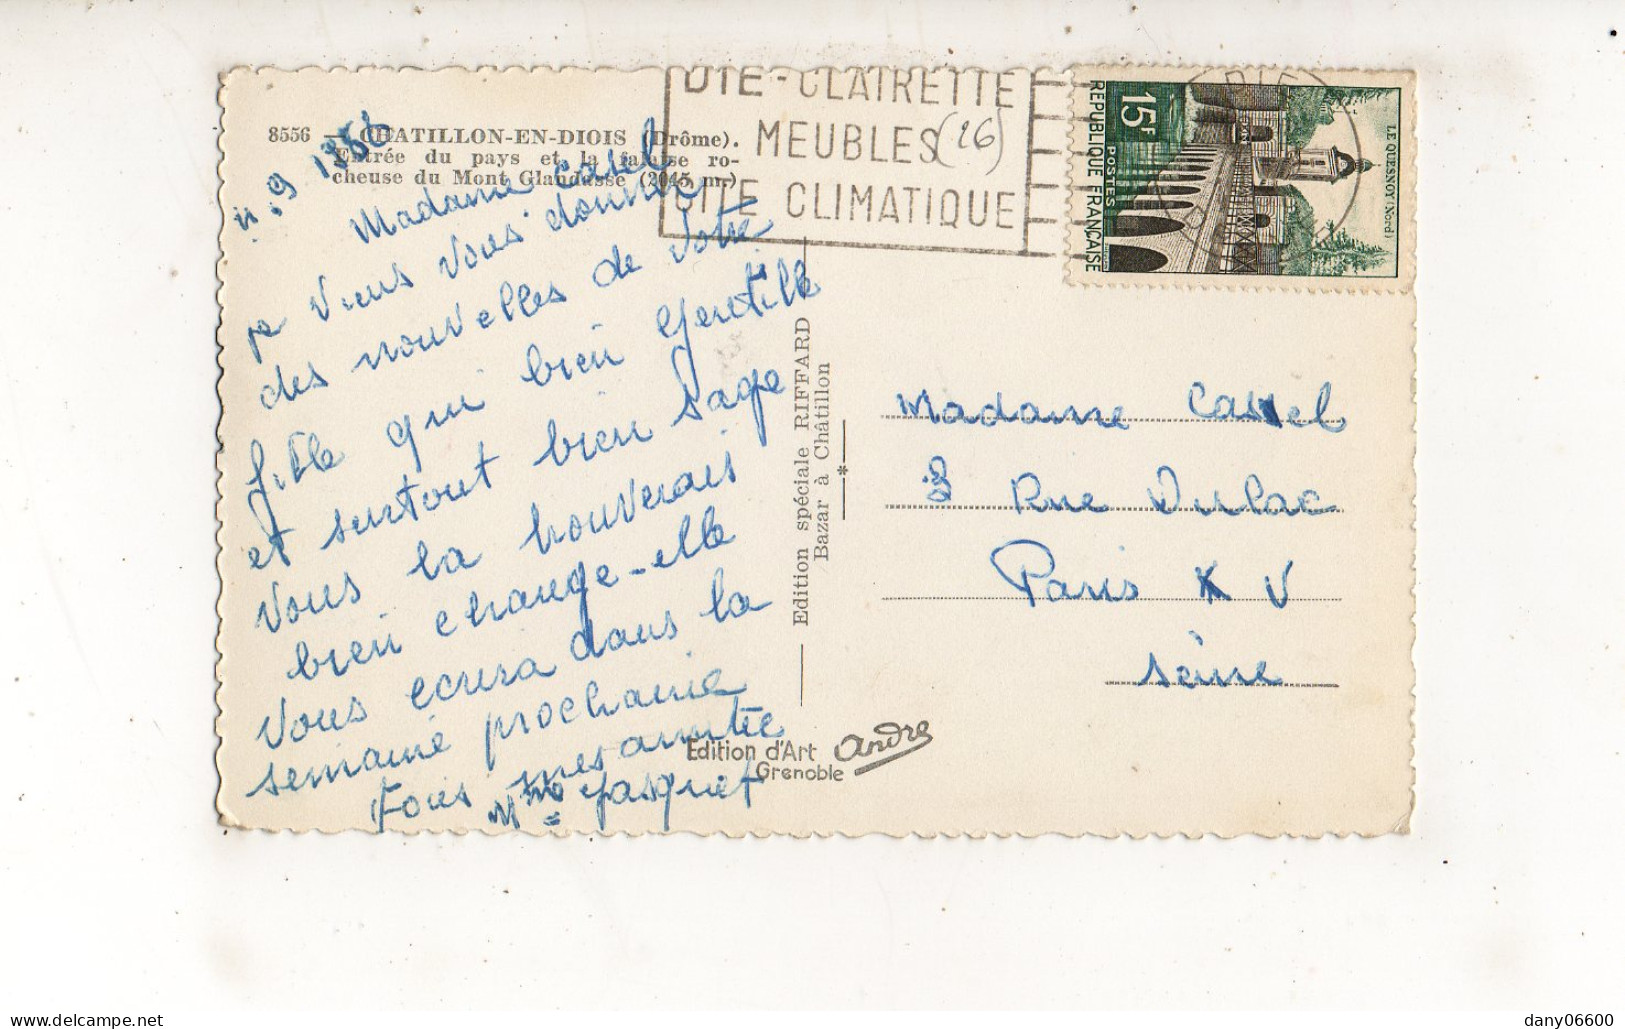 8556 — CHATILLON-EN-DIOIS (Drôme).
Entrée du pays et la falaise ro-
cheuse du Mont Glandasse (2045 m.)
DIE - CLAIRETTE
MEUBLES (26)
CITE CLIMATIQUE
DIE
REPUBLIQUE FRANÇAISE
POSTES
15F
LE QUESNOY (Nord)
Madame Casel
je viens vous donner
des nouvelles de votre
fille qui bien gentille
et surtout bien sage
vous la trouverais
bien change-elle
vous ecrira dans la
semaine prochaine
mes amitée
Mme Jasquet
Edition spéciale RIFFARD
Bazar à Châtillon
Edition d'Art André
Grenoble
Madame Cassel
3 Rue Dulac
Paris X V
seine
delcampe.net
dany06600